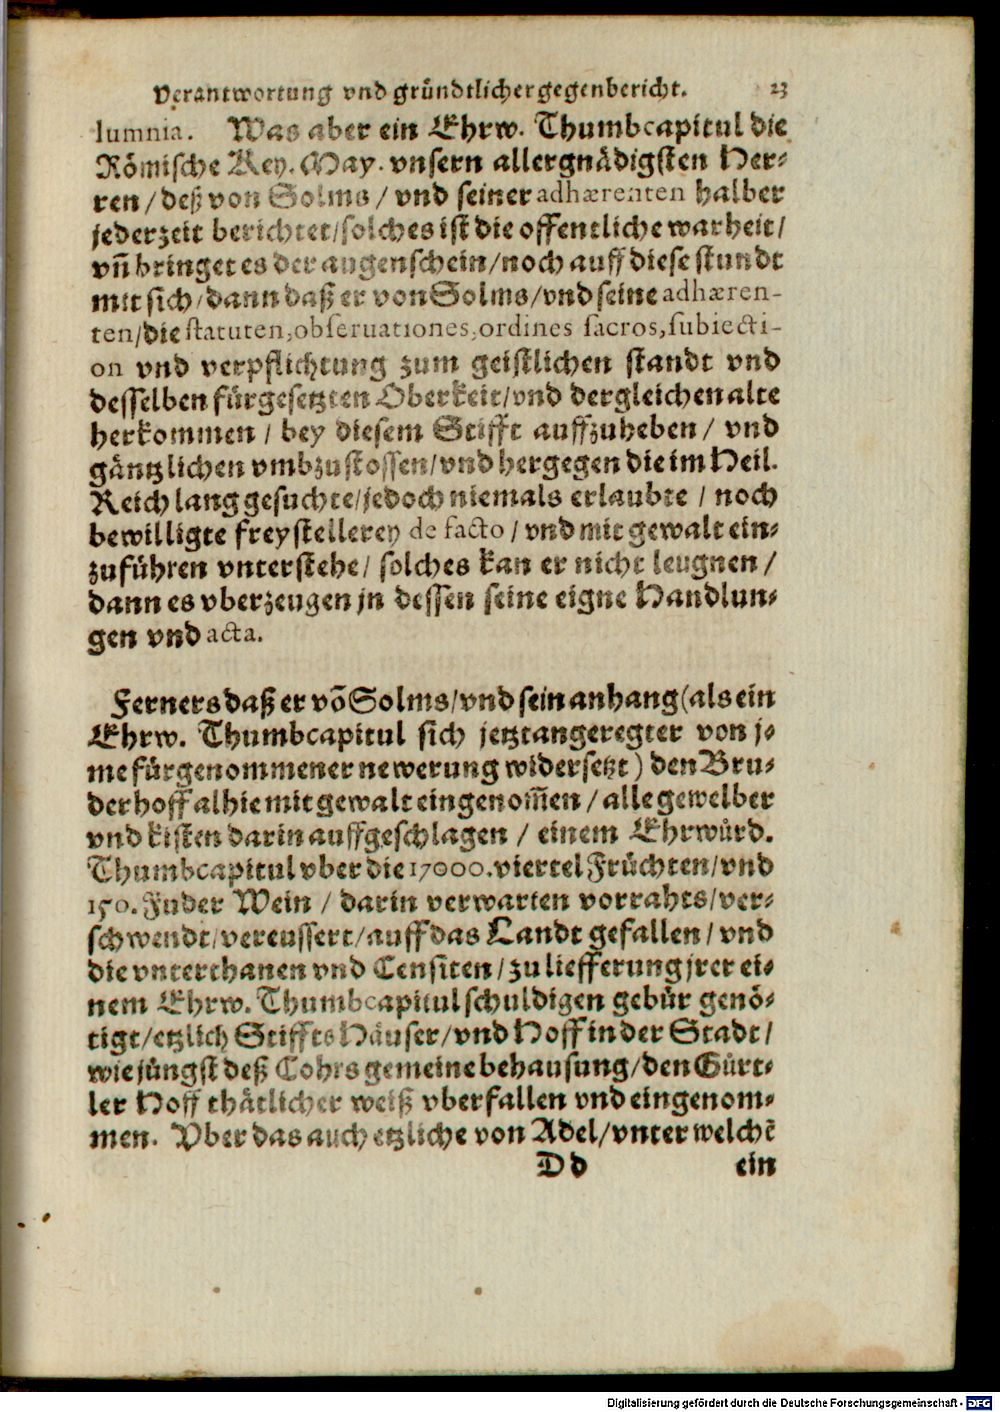 Verantwortung vnd gründtlicher gegenbericht. 23
lumnia. Was aber ein Ehrw. Thumbcapitul die
Römische Key. May. vnsern allergnädigsten Her-
ren / deß von Solms / vnd seiner adhærenten halber
jederzeit berichtet / solches ist die offentliche warheit /
vñ bringet es der augenschein / noch auff diese stundt
mit sich / dann daß er von Solms / vnd seine adhæren-
ten / die statuten, obseruationes, ordines sacros, subiecti-
on vnd verpflichtung zum geistlichen standt vnd
desselben fürgesetzten Oberkeit / vnd dergleichen alte
herkommen / bey diesem Stifft auffzuheben / vnd
gäntzlichen vmbzustossen / vnd hergegen die im Heil.
Reich lang gesuchte / jedoch niemals erlaubte / noch
bewilligte freystellerey de facto / vnd mit gewalt ein-
zuführen vnterstehe / solches kan er nicht leugnen /
dann es vberzeugen jn dessen seine eigne Handlun-
gen vnd acta.
Ferners daß er võ Solms / vnd sein anhang (als ein
Ehrw. Thumbcapitul sich jetztangeregter von je-
me fürgenommener newerung widersetzt) den Bru-
derhoff alhie mit gewalt eingenom̃en / alle gewelber
vnd kisten darin auffgeschlagen / einem Ehrwürd.
Thumbcapitul vber die 17000. viertel Früchten / vnd
150. Fuder Wein / darin verwarten vorrahts / ver-
schwendt / vereussert / auff das Landt gefallen / vnd
die vnterthanen vnd Censiten / zu liefferung jrer ei-
nem Ehrw. Thumbcapitul schuldigen gebür genö-
tigt / etzlich Stiffts Häuser / vnd Hoff in der Stadt /
wie jüngst deß Cohrs gemeine behausung / den Gürt-
ler Hoff thätlicher weiß vberfallen vnd eingenom-
men. Vber das auch etzliche von Adel / vnter welchẽ
Dd ein
Digitalisierung gefördert durch die Deutsche Forschungsgemeinschaft - DFG